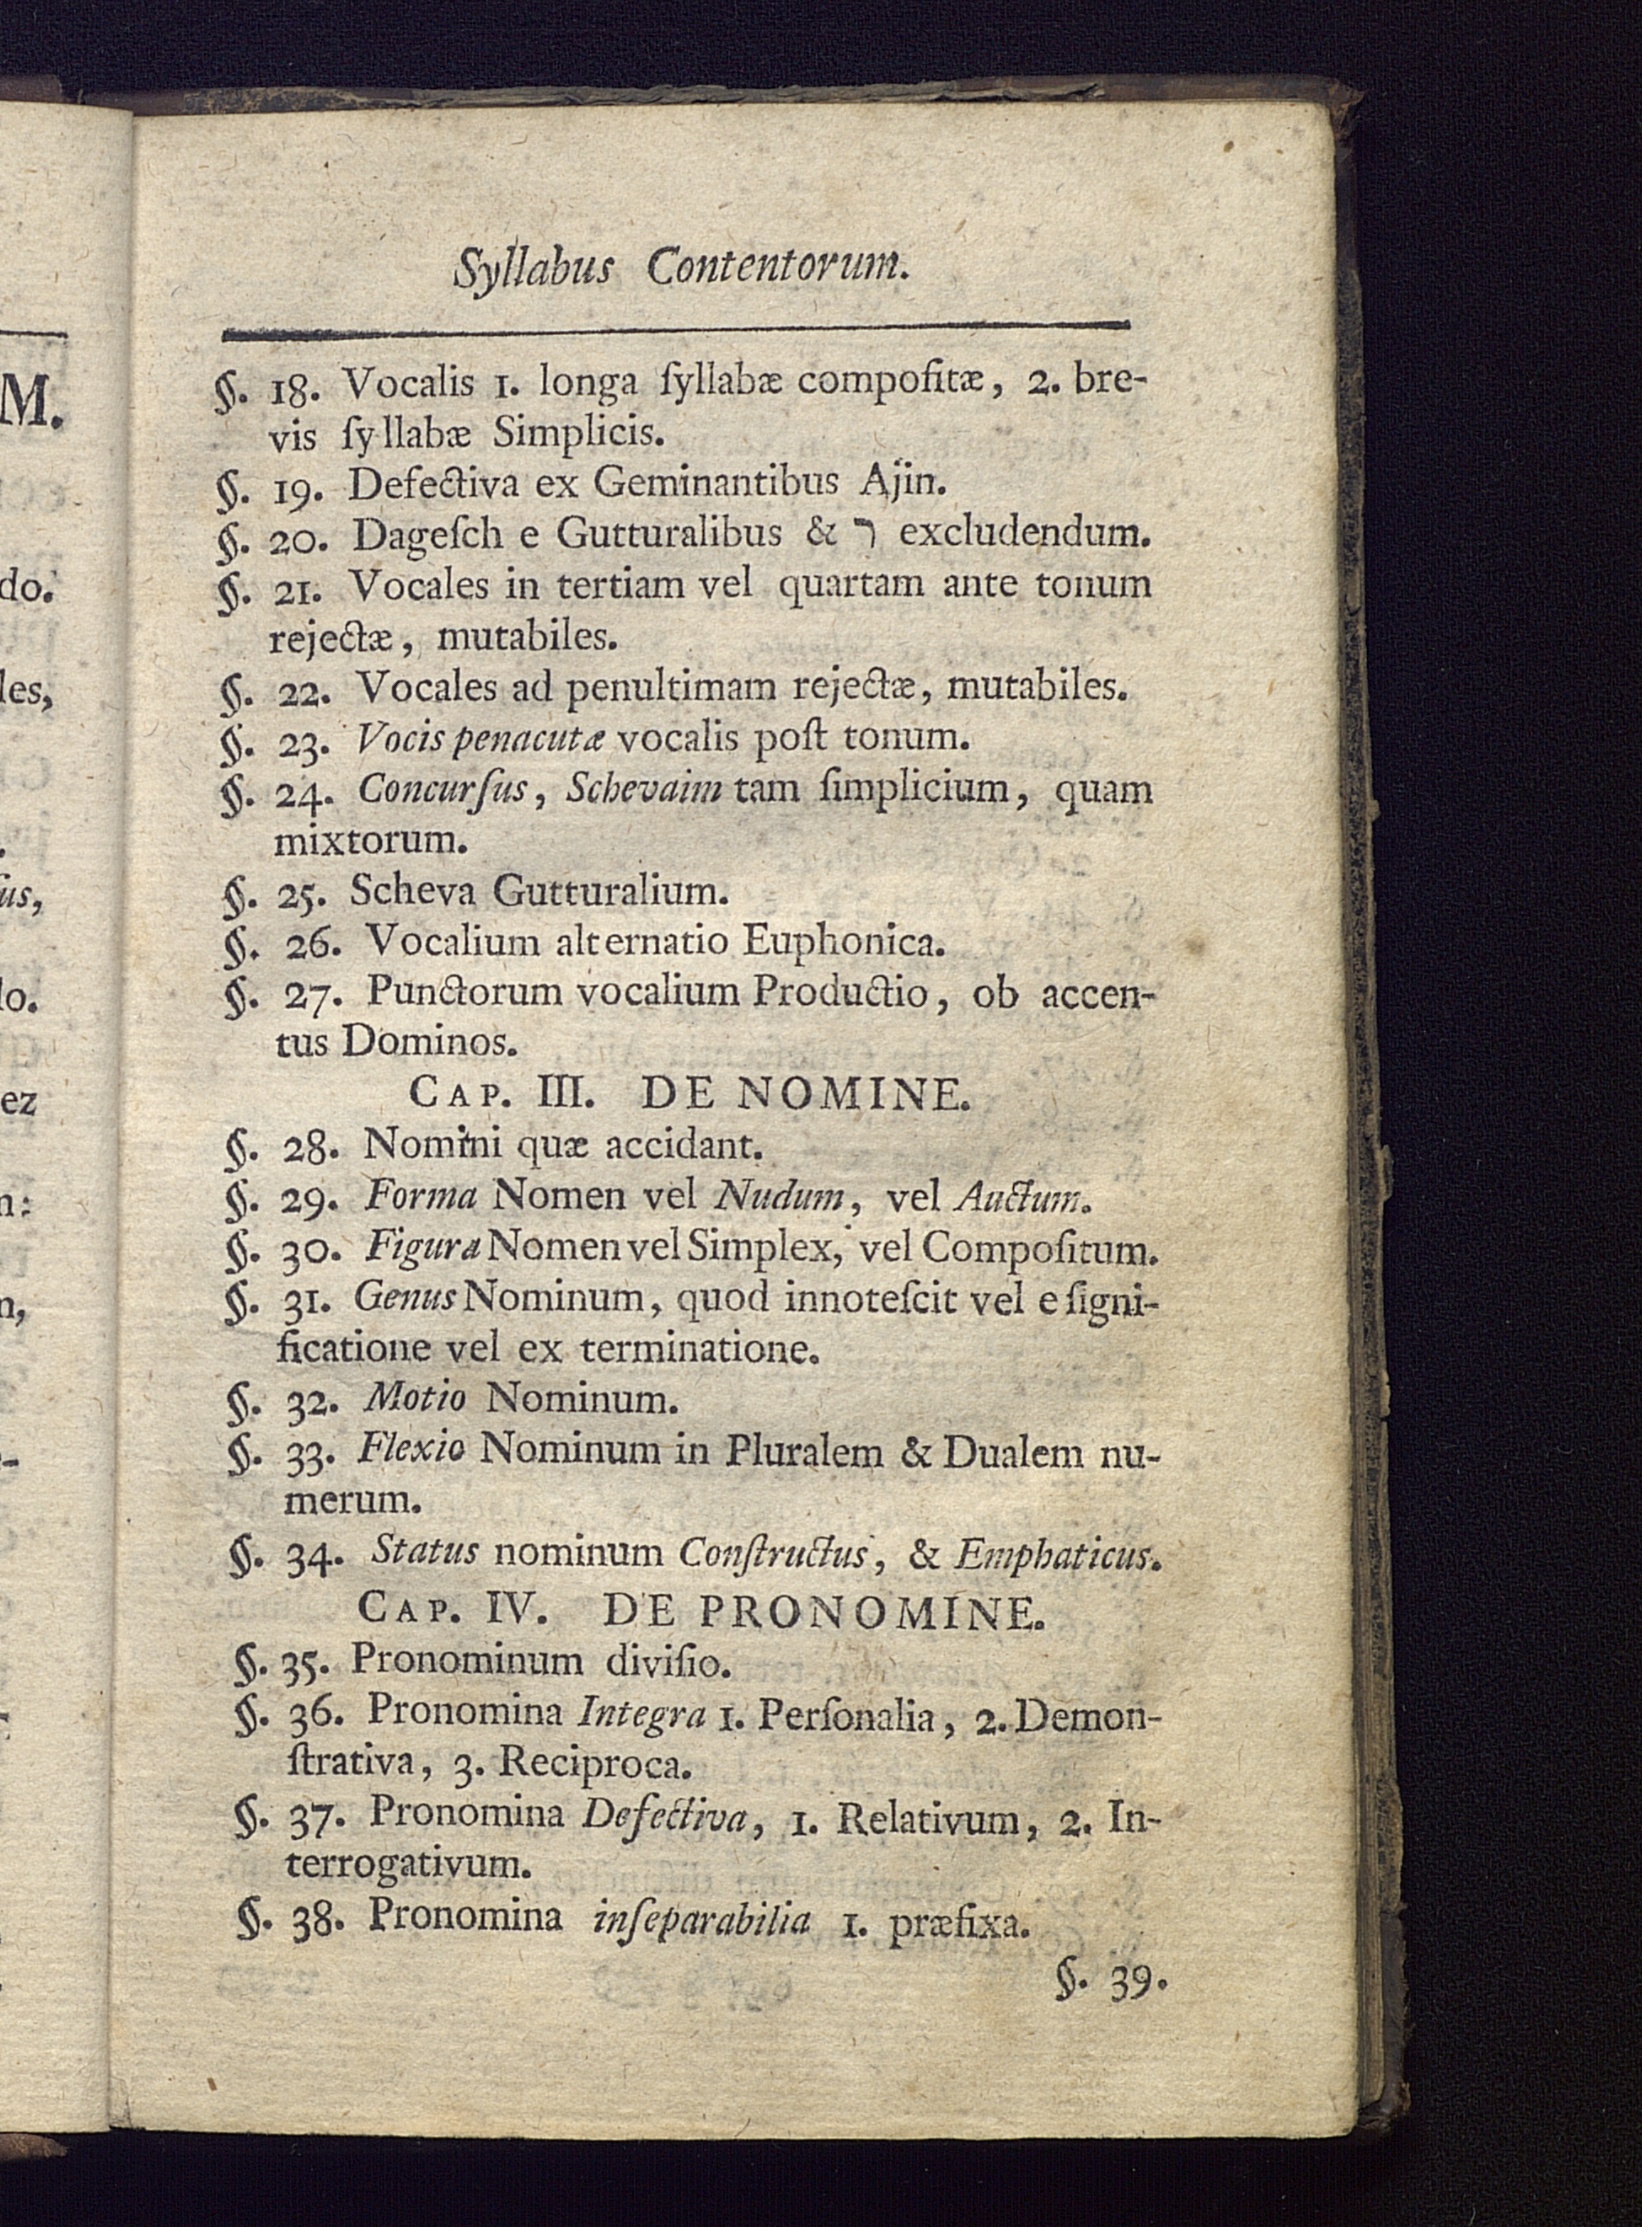 Syllabus Contentorum.
§. 18. Vocalis 1. longa ſyllabæ compoſitæ, 2. bre-
vis ſyllabæ Simplicis.
§. 19. Defectiva ex Geminantibus Ajin.
§. 20. Dageſch e Gutturalibus & ר excludendum.
§. 21. Vocales in tertiam vel quartam ante tonum
rejectæ, mutabiles.
§. 22. Vocales ad penultimam rejectæ, mutabiles.
§. 23. Vocis penacutæ vocalis poſt tonum.
§. 24. Concurſus, Schevaim tam ſimplicium, quam
mixtorum.
§. 25. Scheva Gutturalium.
§. 26. Vocalium alternatio Euphonica.
§. 27. Punctorum vocalium Productio, ob accen-
tus Dominos.
CAP. III. DE NOMINE.
§. 28. Nomini quæ accidant.
§. 29. Forma Nomen vel Nudum, vel Auctum.
§. 30. Figura Nomen vel Simplex, vel Compoſitum.
§. 31. Genus Nominum, quod innoteſcit vel e ſigni-
ficatione vel ex terminatione.
§. 32. Motio Nominum.
§. 33. Flexio Nominum in Pluralem & Dualem nu-
merum.
§. 34. Status nominum Conſtructus, & Emphaticus.
CAP. IV. DE PRONOMINE.
§. 35. Pronominum diviſio.
§. 36. Pronomina Integra 1. Perſonalia, 2. Demon-
ſtrativa, 3. Reciproca.
§. 37. Pronomina Defectiva, 1. Relativum, 2. In-
terrogativum.
§. 38. Pronomina inſeparabilia 1. præfixa.
§. 39.